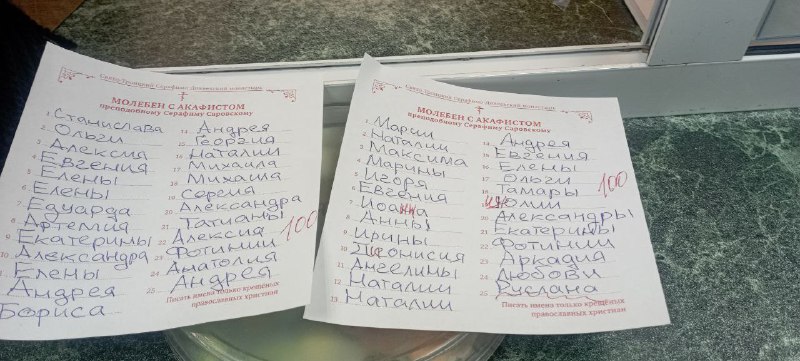 Свято-Троицкий Серафимо-Дивеевский монастырь
МОЛЕБЕН С АКАФИСТОМ
преподобному Серафиму Саровскому
1. Станислава
2. Ольги
3. Алексия
4. Евгения
5. Елены
6. Елены
7. Едуарда
8. Артемия
9. Екатерины
10. Александра
11. Елены
Андрея
Бориса
14. Андрея
15. Георгия
16. Наталии
17. Михаила
18. Михаила
19. Сергия
20. Александра
21. Татианы
22. Алексия
23. Фотинии
24. Анатолия
25. Андрея
100
Писать имена только крещёных
православных христиан
Свято-Троицкий Серафимо-Дивеевский монастырь
МОЛЕБЕН С АКАФИСТОМ
преподобному Серафиму Саровскому
1. Марии
2. Наталии
3. Максима
4. Марины
5. Игоря
6. Евгения
7. Иоанна
8. Анны
9. Ирины
10. Дионисия
11. Ангелины
12. Наталии
13. Наталии
14. Андрея
15. Евгения
16. Елены
17. Ольги
18. Тамары
19. Иулии
20. Александры
21. Екатерины
22. Фотинии
23. Аркадия
24. Любови
25. Руслана
100
Писать имена только крещёных
православных христиан